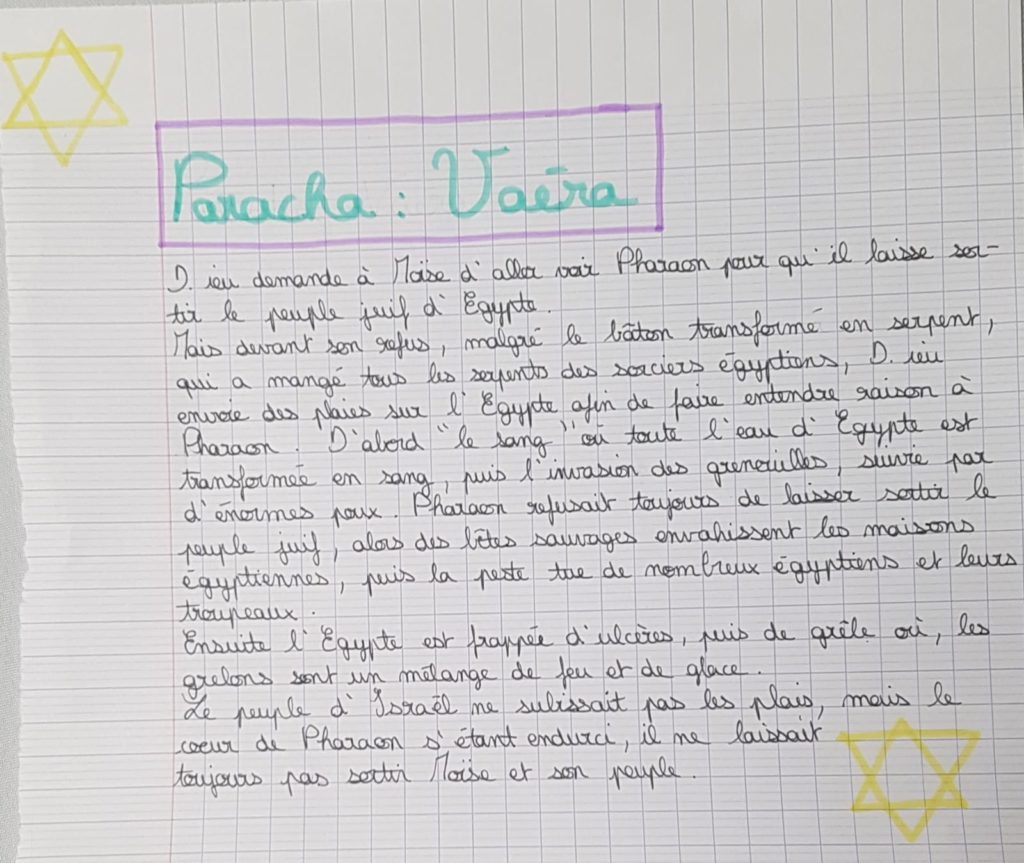 Paracha : Vaéra
D. ieu demande à Moïse d'aller voir Pharaon pour qu'il laisse sor-
tir le peuple juif d'Egypte.
Mais devant son refus, malgré le bâton transformé en serpent,
qui a mangé tous les serpents des sorciers égyptiens, D. ieu
envoie des plaies sur l'Egypte afin de faire entendre raison à
Pharaon. D'abord "le sang" où toute l'eau d'Egypte est
transformée en sang, puis l'invasion des grenouilles, suivie par
d'énormes poux. Pharaon refusait toujours de laisser sortir le
peuple juif, alors des bêtes sauvages envahissent les maisons
égyptiennes, puis la peste tue de nombreux égyptiens et leurs
troupeaux.
Ensuite l'Egypte est frappée d'ulcères, puis de grêle où, les
grelons sont un mélange de feu et de glace.
Le peuple d'Israël ne subissait pas les plais, mais le
coeur de Pharaon s'étant endurci, il ne laissait
toujours pas sortir Moïse et son peuple.